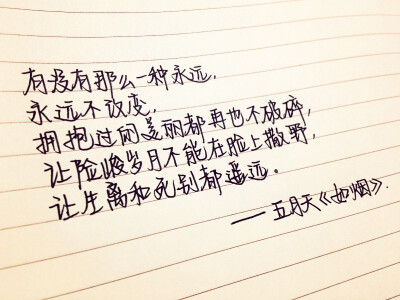 有没有那么一种永远，
永远不改变，
拥抱过的美丽都再也不破碎，
让险峻岁月不能在脸上撒野，
让生离和死别都遥远。
——五月天《如烟》.